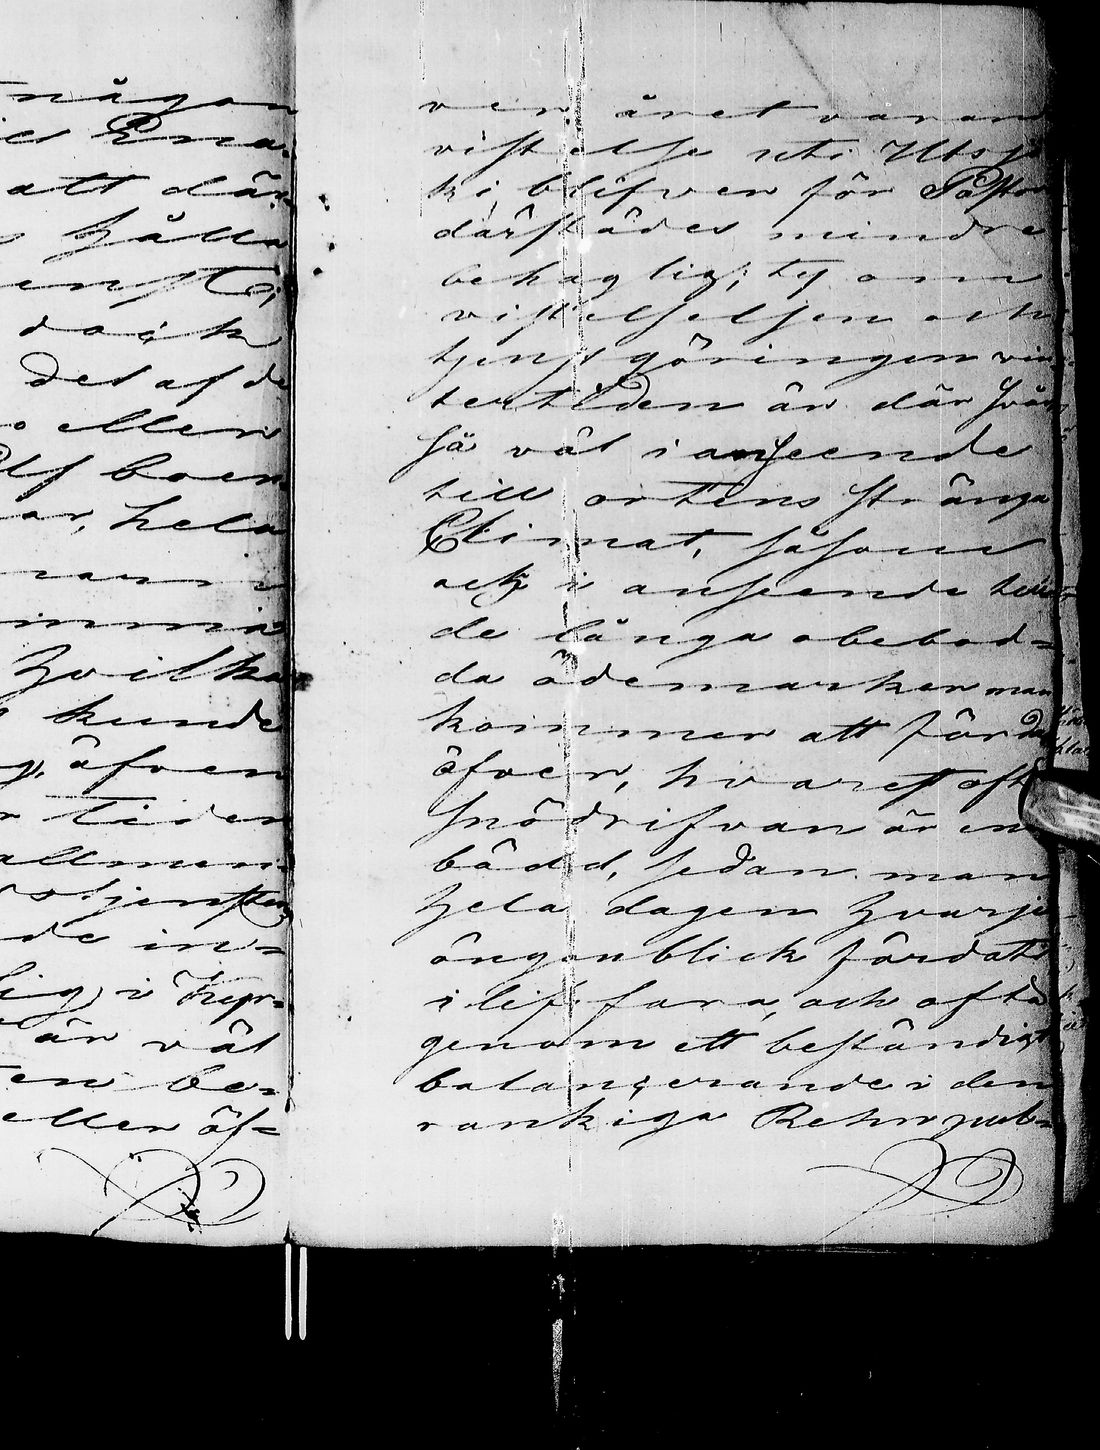 någon
Ena-
att där
hålla
dock
del af de
eller
boen
hela
hvilka
kunde
äfven
tiden
allmen-
tjensten
de in-
lig) i
är väl
ber
eller öf-
ver året varan
vistelse uti Utsjo
ki, blifver för Pastor
därstädes mindre
behaglig; ty om
vistelselsen och
tjenstgöringen vin-
tertiden är där svår
så väl i anseende
till ortens stränga
Climat, såsom
ock i anseende till
de långa obebod-
da ödemarker man
kommer att färdas
öfver, hvarest ofta
snödrifvan är en
bädd, sedan man
hela dagen hvarje
ögonblick färdats
i lifsfara, och ofta
genom ett beständigt
balancerande i den
rankiga Rehnpul-